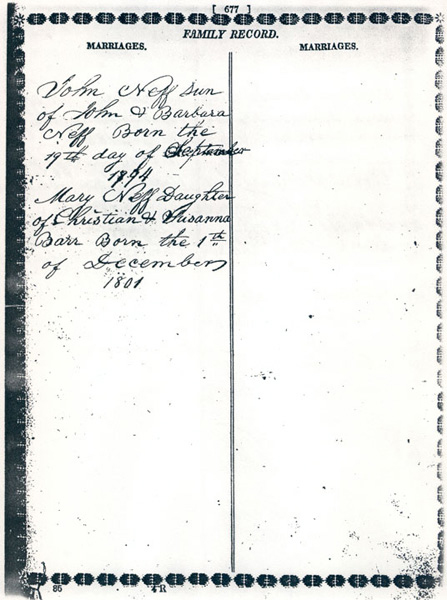 [ 677 ]
FAMILY RECORD.
MARRIAGES.
MARRIAGES.
John Neff Sun
of John & Barbara
Neff Born the
19th day of September
Mary Neff Daughter
of Christian & Susanna
Barr Born the 1th
of December
1801
86
4 R